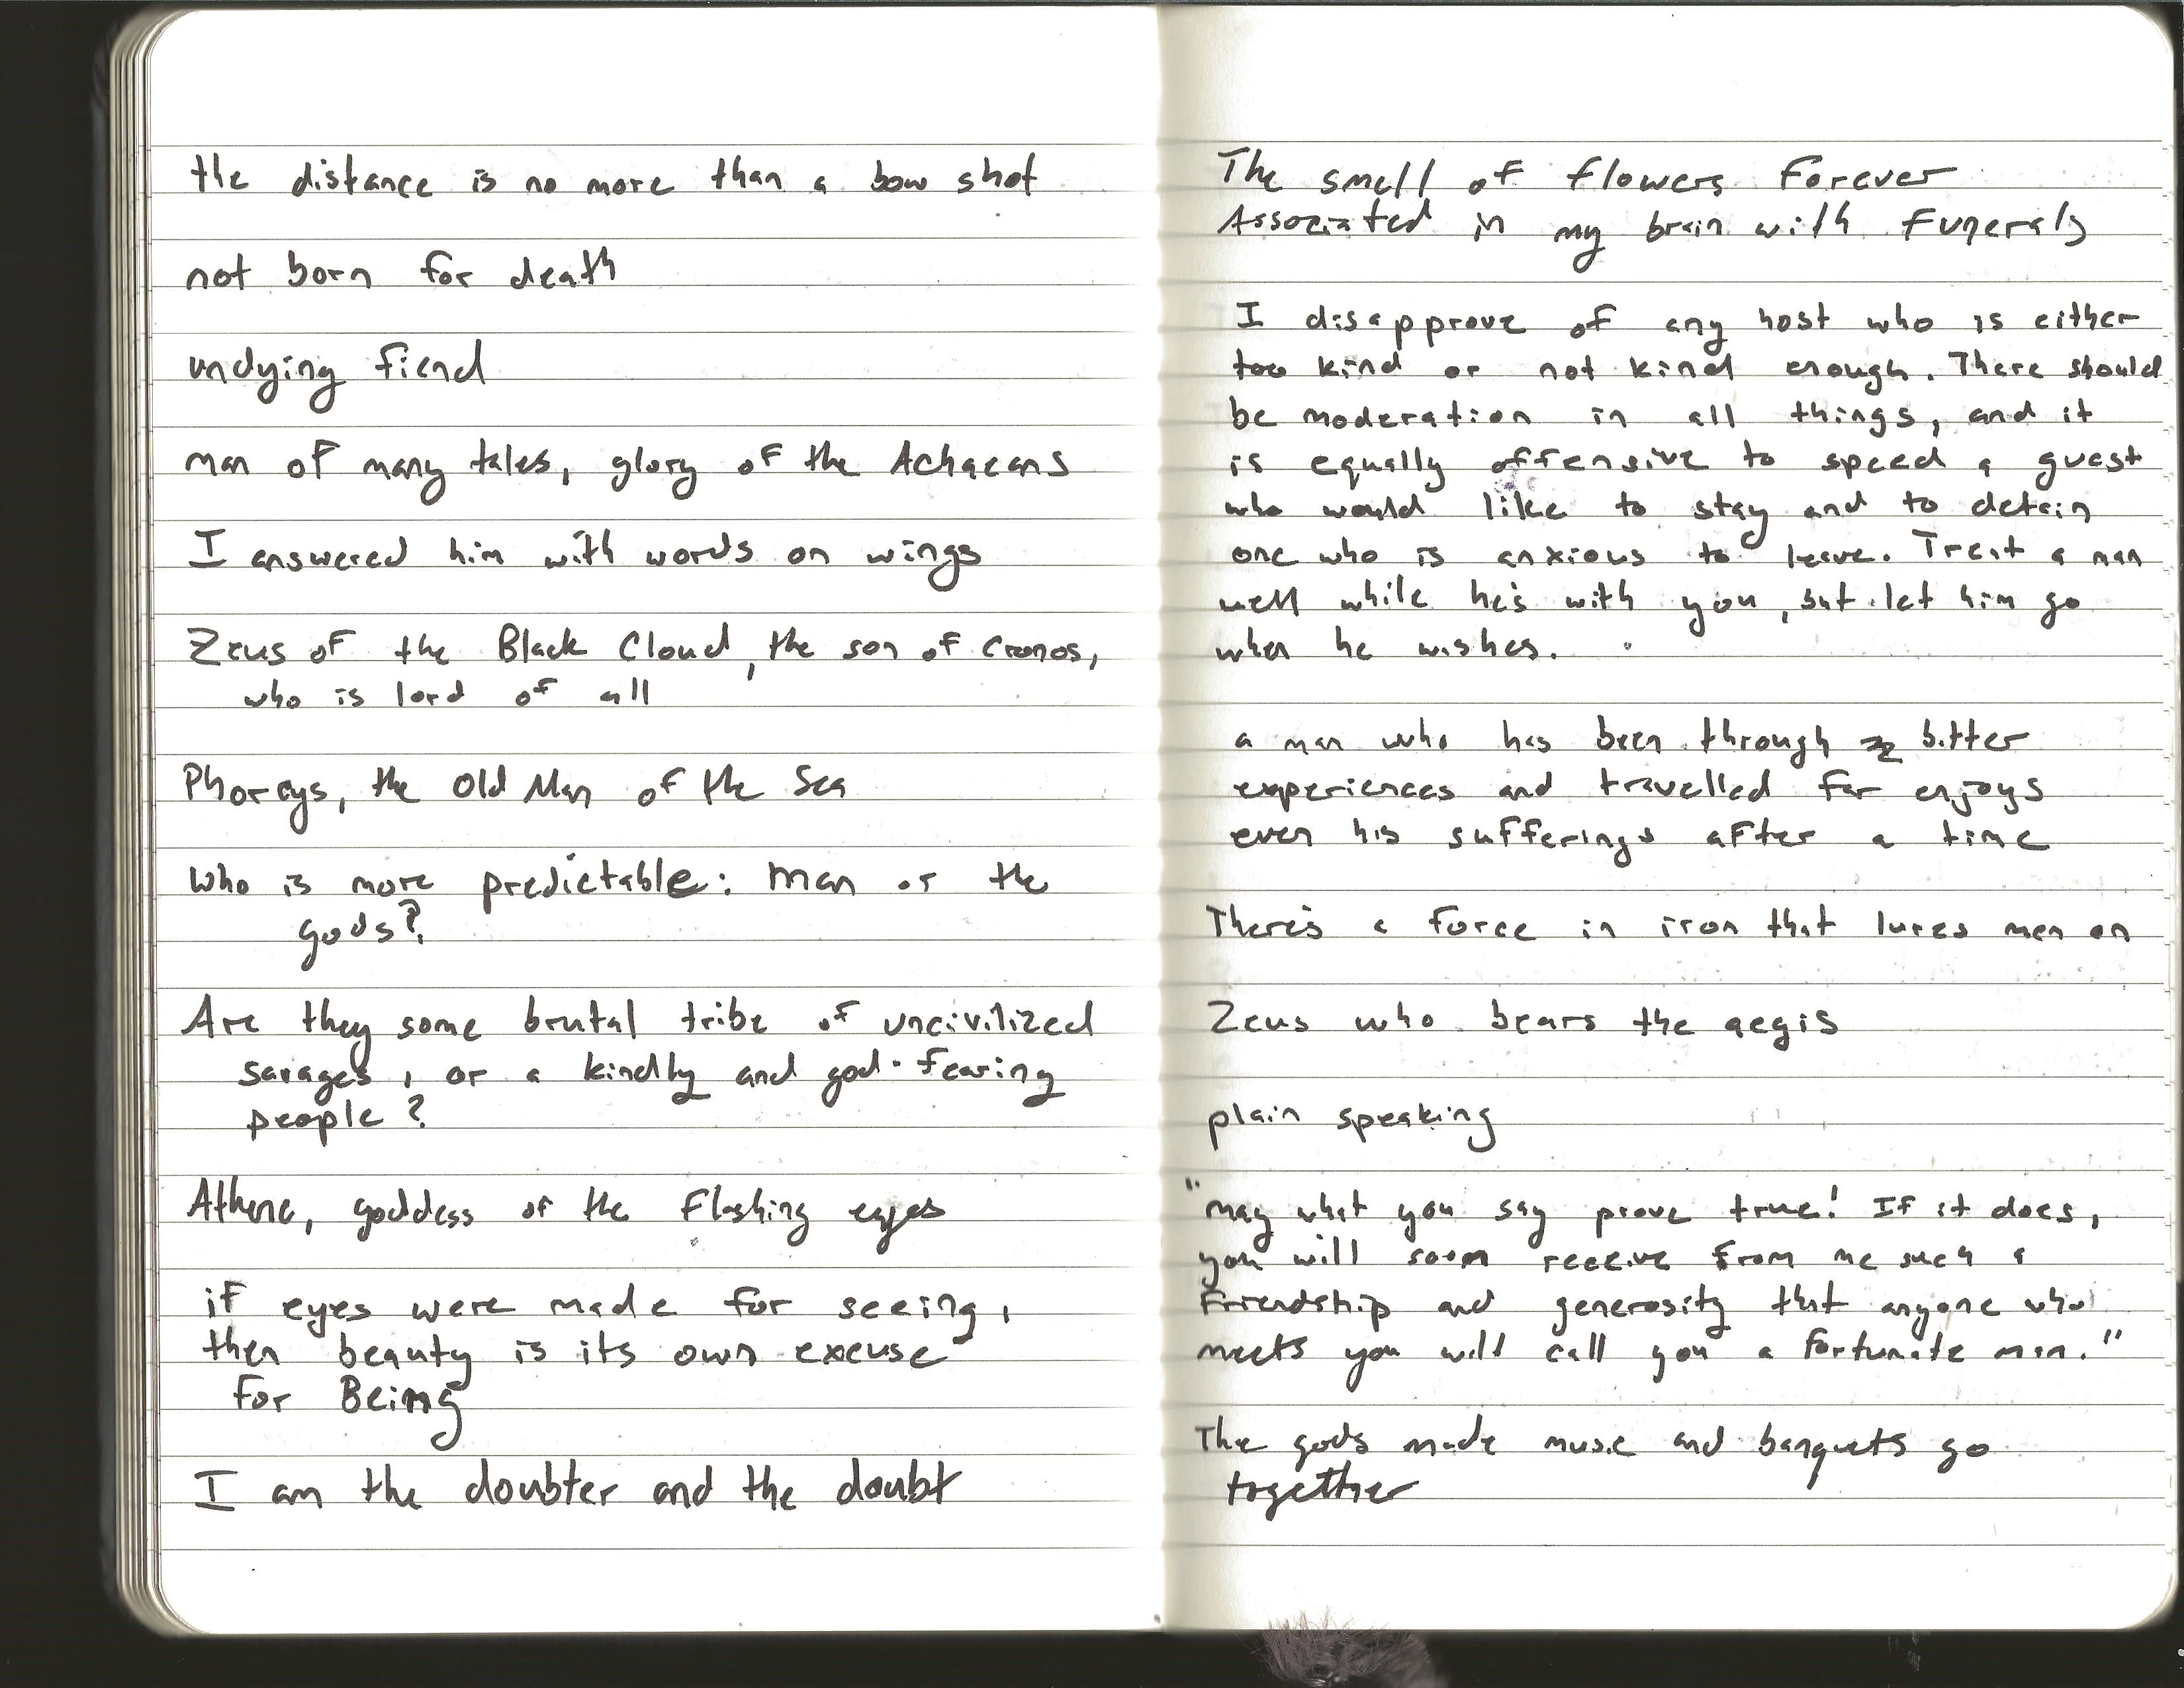 the distance is no more than a bow shot
not born for death
undying fiend
man of many tales, glory of the Achaeans
I answered him with words on wings
Zeus of the Black Cloud, the son of Cronos,
who is lord of all
Phorcys, the Old Man of the Sea
Who is more predictable: man or the
gods?
Are they some brutal tribe of uncivilized
savages, or a kindly and god-fearing
people?
Athene, goddess of the Flashing eyes
if eyes were made for seeing,
then beauty is its own excuse
for Being
I am the doubter and the doubt
The smell of flowers Forever
Associated in my brain with Funerals
I disapprove of any host who is either
too kind or not kind enough. There should
be moderation in all things, and it
is equally offensive to speed a guest
who would like to stay and to detain
one who is anxious to leave. Treat a man
well while he's with you, but let him go
when he wishes.
a man who has been through bitter
experiences and travelled far enjoys
even his sufferings after a time
There's a force in iron that lures men on
Zeus who bears the aegis
plain speaking
"may what you say prove true! If it does,
you will soon receive from me such a
Friendship and generosity that anyone who
meets you will call you a fortunate man."
The gods made music and banquets go
together